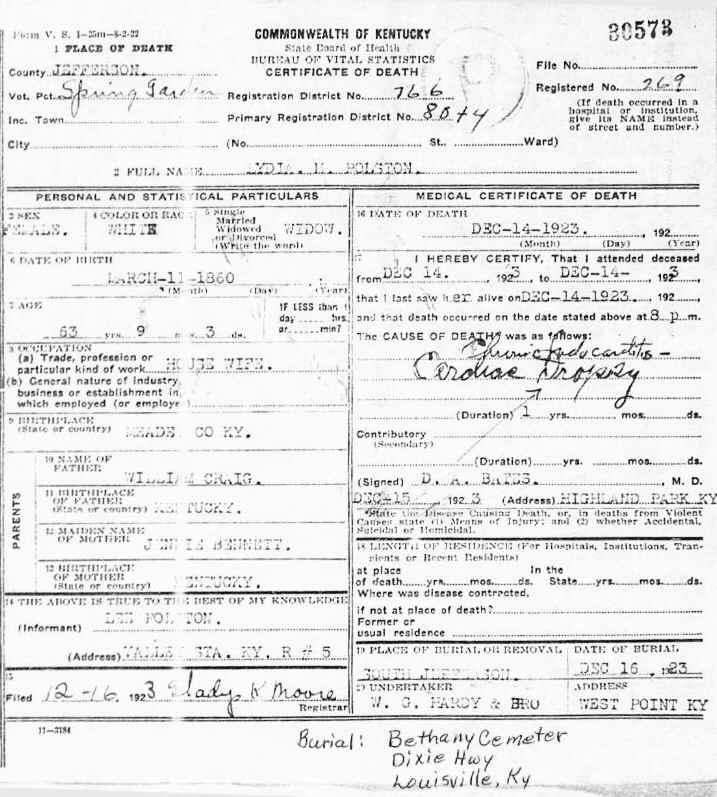 Form V. S. 1-25m-8-2-22
COMMONWEALTH OF KENTUCKY
30573
1 PLACE OF DEATH
State Board of Health
BUREAU OF VITAL STATISTICS
CERTIFICATE OF DEATH
File No.
County JEFFERSON.
Registered No. 269
Vot. Pct. Spring Garden
Registration District No. 766
(If death occurred in a
hospital or institution,
give its NAME instead
of street and number.)
Inc. Town
Primary Registration District No. 8044
City (No. St. Ward)
2 FULL NAME LYDIA. M. POLSTON.
PERSONAL AND STATISTICAL PARTICULARS
3 SEX
FEMALE.
4 COLOR OR RACE
WHITE
5 Single
Married
Widowed
or Divorced
(Write the word)
WIDOW.
6 DATE OF BIRTH
MARCH-11-1860
(Month) (Day) (Year)
7 AGE
63 yrs. 9 mos. 3 ds.
IF LESS than 1
day hrs.
or min?
8 OCCUPATION
(a) Trade, profession or
particular kind of work HOUSE WIFE.
(b) General nature of industry,
business or establishment in
which employed (or employer)
9 BIRTHPLACE
(State or country) MEADE CO KY.
PARENTS
10 NAME OF
FATHER
WILLIAM CRAIG.
11 BIRTHPLACE
OF FATHER
(State or country) KENTUCKY.
12 MAIDEN NAME
OF MOTHER
JENNIE BENNETT.
13 BIRTHPLACE
OF MOTHER
(State or country) KENTUCKY.
14 THE ABOVE IS TRUE TO THE BEST OF MY KNOWLEDGE
(Informant) LEE POLSTON.
(Address) VALLEY STA. KY. R # 5
15
Filed 12-16 1923 Gladys K Moore
Registrar
11-3184
MEDICAL CERTIFICATE OF DEATH
16 DATE OF DEATH
DEC-14-1923. , 192
(Month) (Day) (Year)
17 I HEREBY CERTIFY, That I attended deceased
from DEC 14. 1923, to DEC-14- 1923
that I last saw her alive on DEC-14-1923. , 192
and that death occurred on the date stated above at 8 p m.
The CAUSE OF DEATH* was as follows:
Chronic Endocarditis -
Cerdiac Dropsy
(Duration) 1 yrs. mos. ds.
Contributory
(Secondary)
(Duration) yrs. mos. ds.
(Signed) D. A. BATES. , M. D.
DEC-15 , 1923 (Address) HIGHLAND PARK KY
*State the Disease Causing Death, or, in deaths from Violent
Causes state (1) Means of Injury; and (2) whether Accidental,
Suicidal or Homicidal.
18 LENGTH OF RESIDENCE (For Hospitals, Institutions, Tran-
sients or Recent Residents)
at place In the
of death yrs. mos. ds. State yrs. mos. ds.
Where was disease contracted,
if not at place of death?
Former or
usual residence
19 PLACE OF BURIAL OR REMOVAL
SOUTH JEFFERSON.
DATE OF BURIAL
DEC 16 , 1923
20 UNDERTAKER
W. G. HARDY & BRO
ADDRESS
WEST POINT KY
Burial: Bethany Cemeter
Dixie Hwy
Louisville, Ky